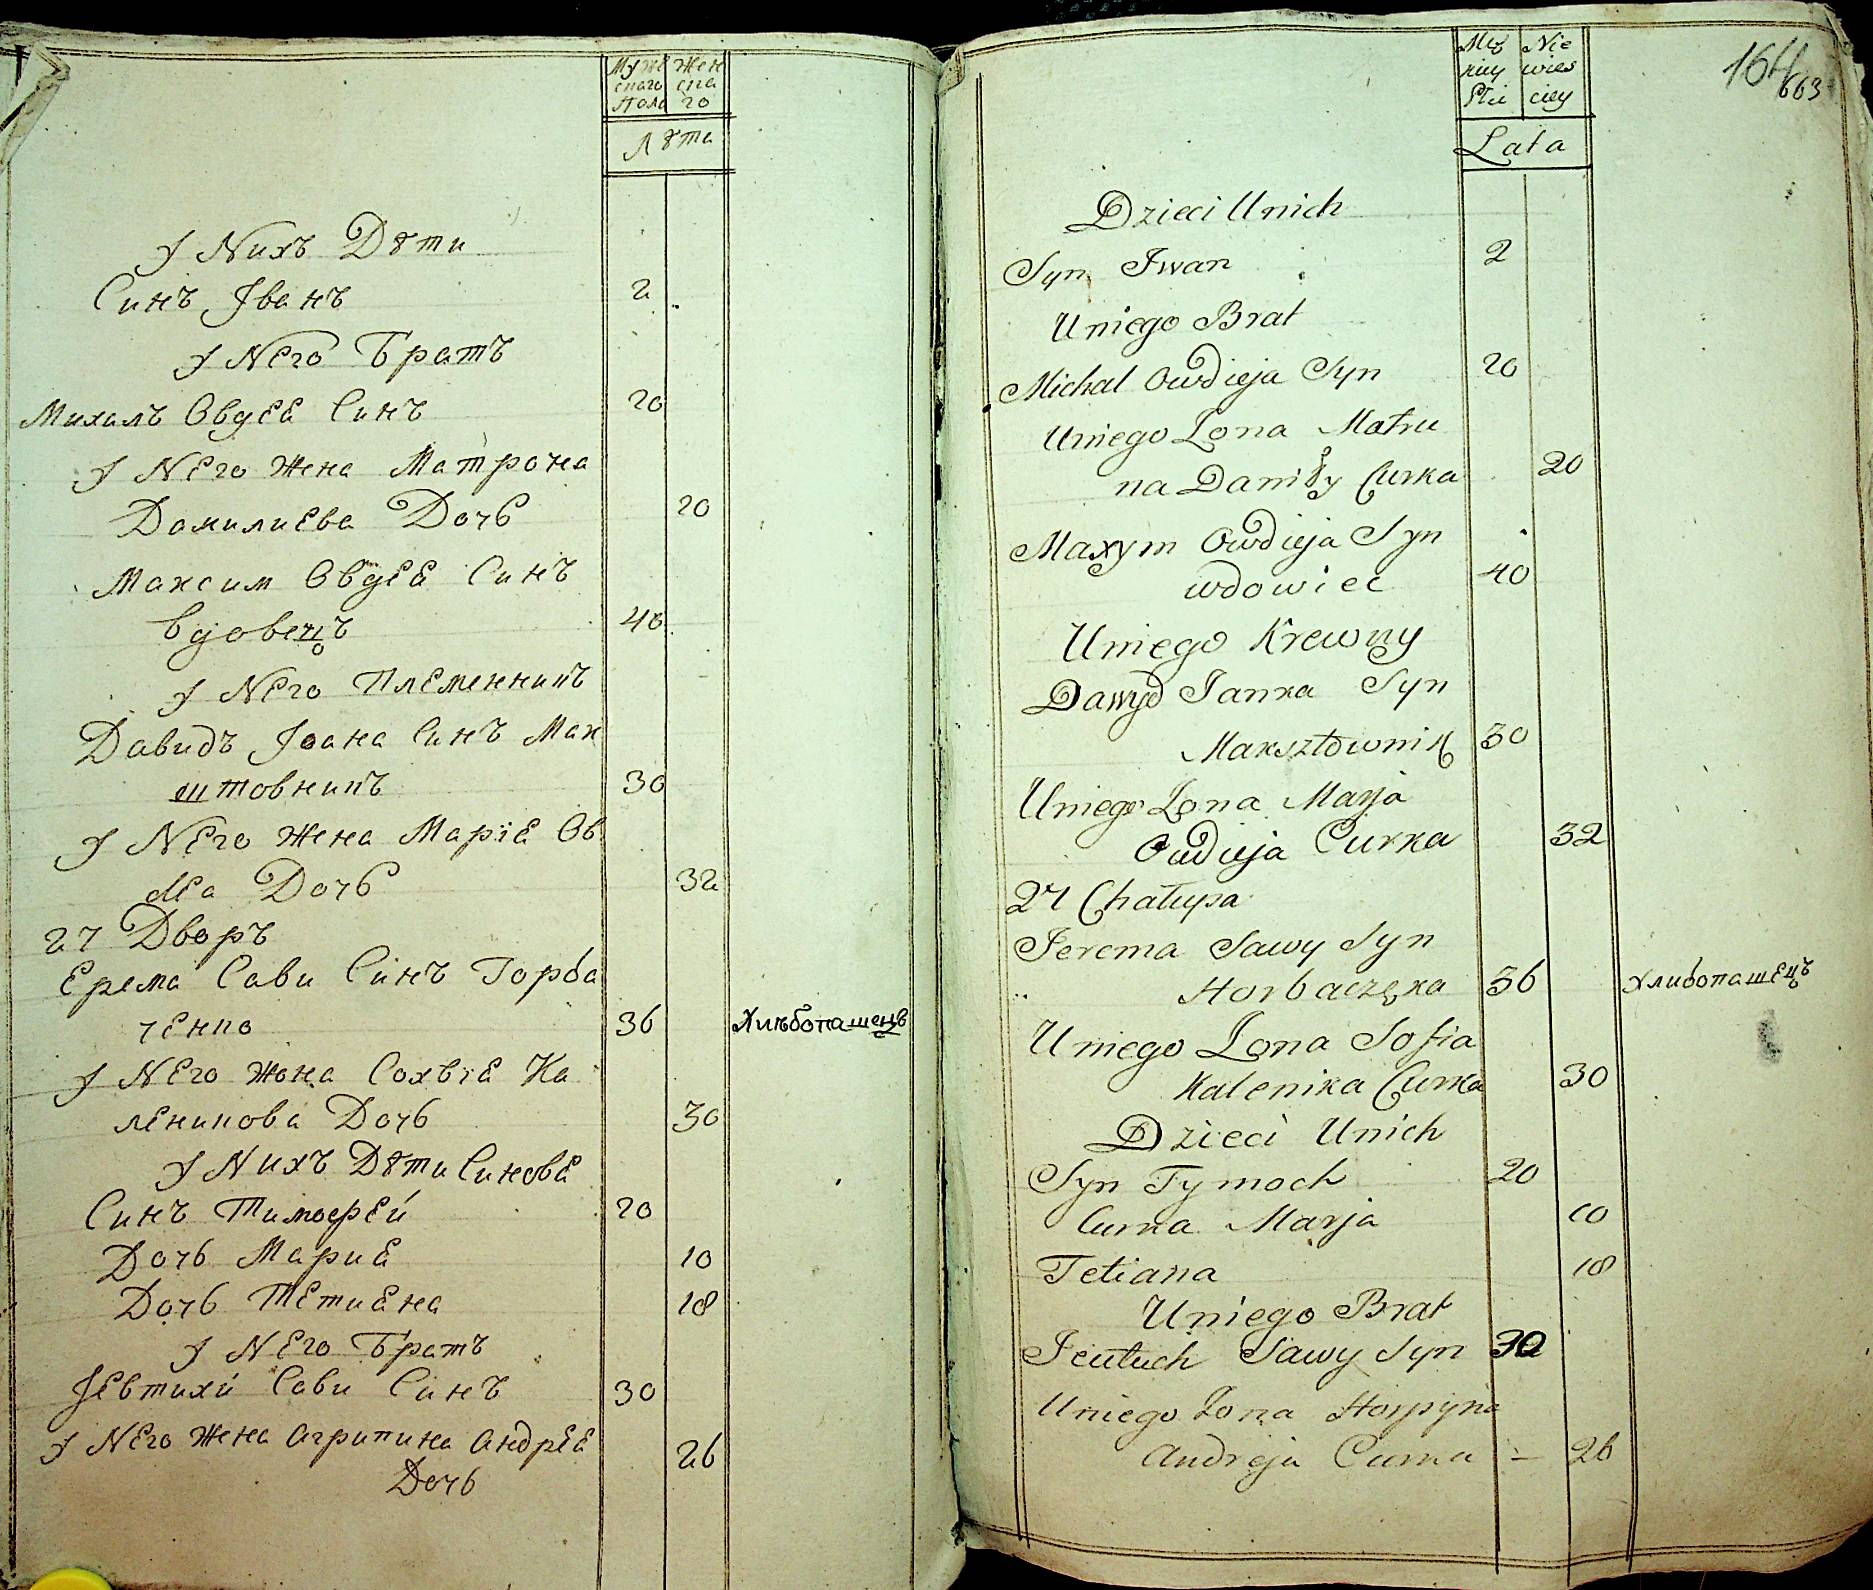 Муже Жен
скаго ска
Пола го
Лѣта
У Нихъ Дѣти
Синъ Іванъ 2
У Него Братъ
Михалъ Овдѣя Синъ 20
У Него Жена Матрона
Данилиева Дочь 20
Максим Овдѣя Синъ
Вдовецъ 40
У Него Племенникъ
Давидъ Іоана Синъ Мак
штовникъ 30
У Него Жена Марія Ов
дѣа Дочь 32
27 Дворъ
Ерема Сави Синъ Горба
ченко 36 Хлѣбопашецъ
У Него Жона Сохвія Ка
леникова Дочь 30
У Нихъ Дѣти Синовя
Синъ Тимофей 20
Дочь Мария 10
Дочь Тетияна 18
У Него Братъ
Іевтихи Сави Синъ 30
У Него Жена Агрипина Андрѣя 26
Дочь
164
663
Męz Nie
kiey wies
Płci ciey
Lata
Dzieci Unich
Syn Iwan 2
Uniego Brat
Michal Owdieja Syn 20
Uniego Zona Matru
na Daniły Curka 20
Maxym Owdieja Syn
wdowiec 40
Uniego Krewny
Dawyd Janka Syn
Maksztownik 30
Uniego Zona Marja
Owdieja Curka 32
27 Chałupa
Jerema Sawy Syn
Horbaczęka 36 Хлибопашецъ
Uniego Zona Sofia
Kalenika Curka 30
Dzieci Unich
Syn Tymoch 20
Curka Marja 10
Tetiana 18
Uniego Brat
Jewtuch Sawy Syn 30
Uniego Zona Horpyna
Andreja Curka – 26